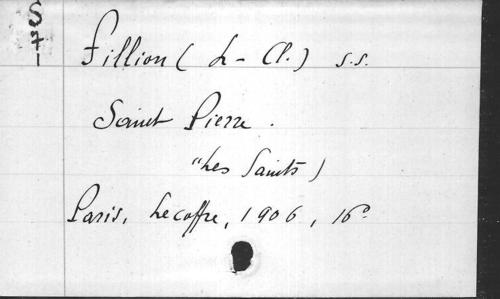 S
7
1
Fillion (L-Cl.) s.s.
Saint Pierre.
"Les Saints)
Paris, Lecoffre, 1906, 16°